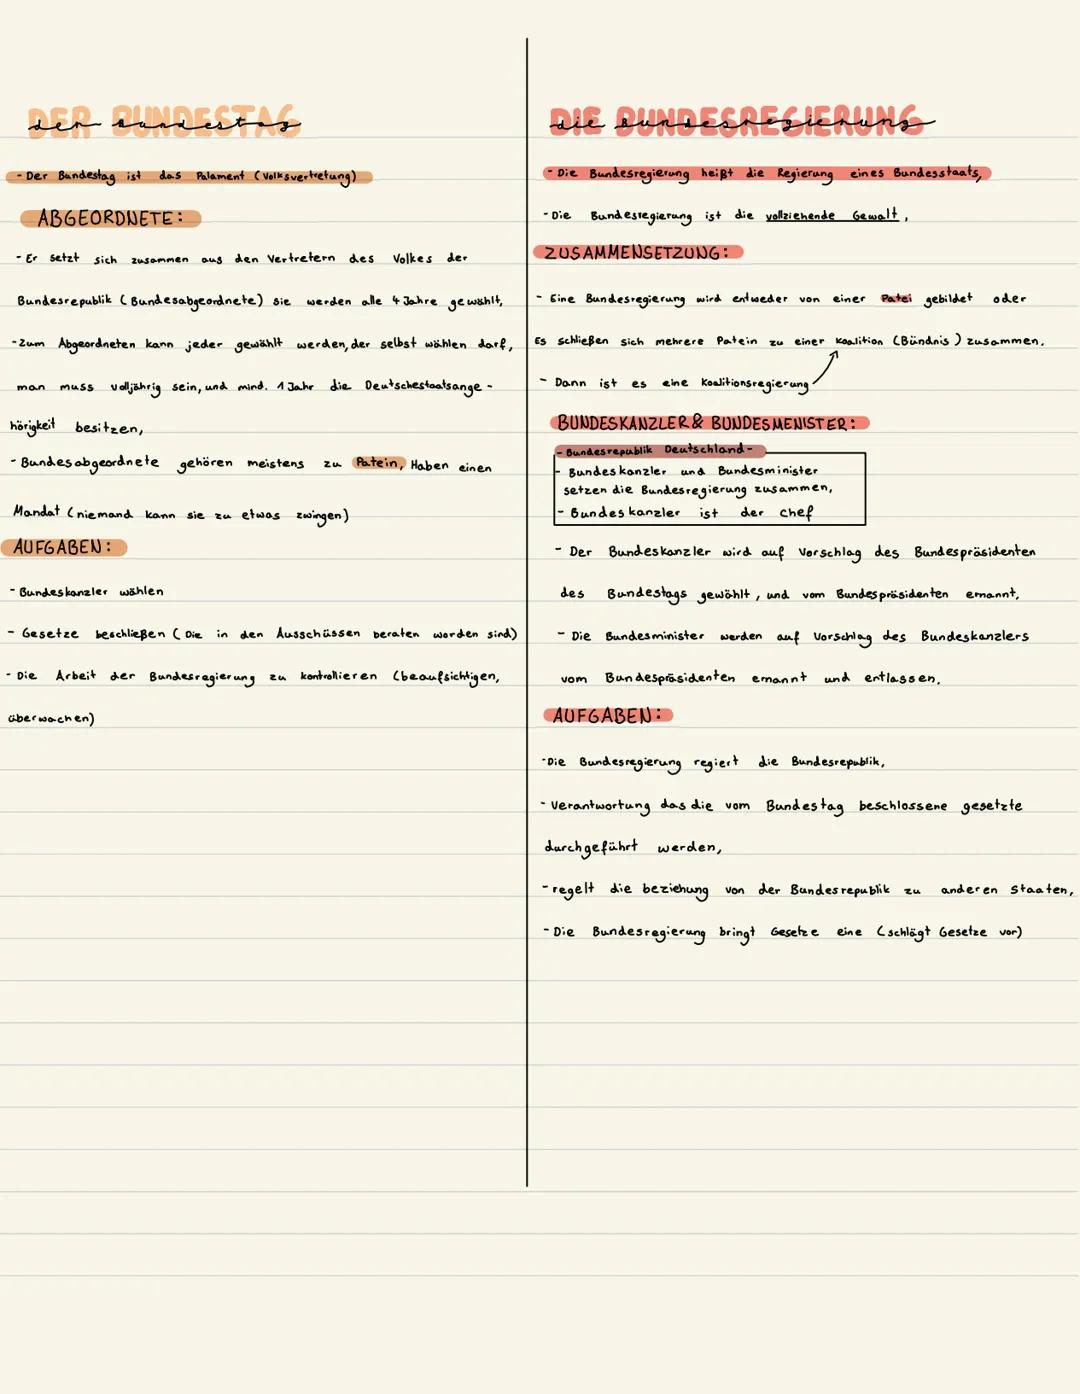 DER BUNDESTAG
der Bundestag
- Der Bundestag ist das Palament (Volksvertretung)
ABGEORDNETE:
- Er setzt sich zusammen aus den Vertretern des Volkes der
Bundesrepublik (Bundesabgeordnete) sie werden alle 4 Jahre gewählt,
- Zum Abgeordneten kann jeder gewählt werden, der selbst wählen darf,
man muss volljährig sein, und mind. 1 Jahr die Deutschestaatsange-
hörigkeit besitzen,
- Bundesabgeordnete gehören meistens zu Patein, Haben einen
Mandat (niemand kann sie zu etwas zwingen)
AUFGABEN:
- Bundeskanzler wählen
- Gesetze beschließen (Die in den Ausschüssen beraten worden sind)
- Die Arbeit der Bundesregierung zu kontrollieren (beaufsichtigen,
überwachen)
DIE BUNDESREGIERUNG
die Bundesregierung
- Die Bundesregierung heißt die Regierung eines Bundesstaats,
- Die Bundesregierung ist die vollziehende Gewalt,
ZUSAMMENSETZUNG:
- Eine Bundesregierung wird entweder von einer Patei gebildet oder
Es schließen sich mehrere Patein zu einer Koalition (Bündnis) zusammen.
- Dann ist es eine Koalitionsregierung
BUNDESKANZLER & BUNDESMENISTER:
- Bundesrepublik Deutschland -
- Bundeskanzler und Bundesminister
setzen die Bundesregierung zusammen,
- Bundeskanzler ist der chef
- Der Bundeskanzler wird auf Vorschlag des Bundespräsidenten
des Bundestags gewählt, und vom Bundespräsidenten ernannt,
- Die Bundesminister werden auf Vorschlag des Bundeskanzlers
vom Bundespräsidenten ernannt und entlassen.
AUFGABEN:
- Die Bundesregierung regiert die Bundesrepublik,
- Verantwortung das die vom Bundestag beschlossene gesetzte
durchgeführt werden,
- regelt die beziehung von der Bundesrepublik zu anderen Staaten,
- Die Bundesregierung bringt Gesetze eine (schlägt Gesetze vor)